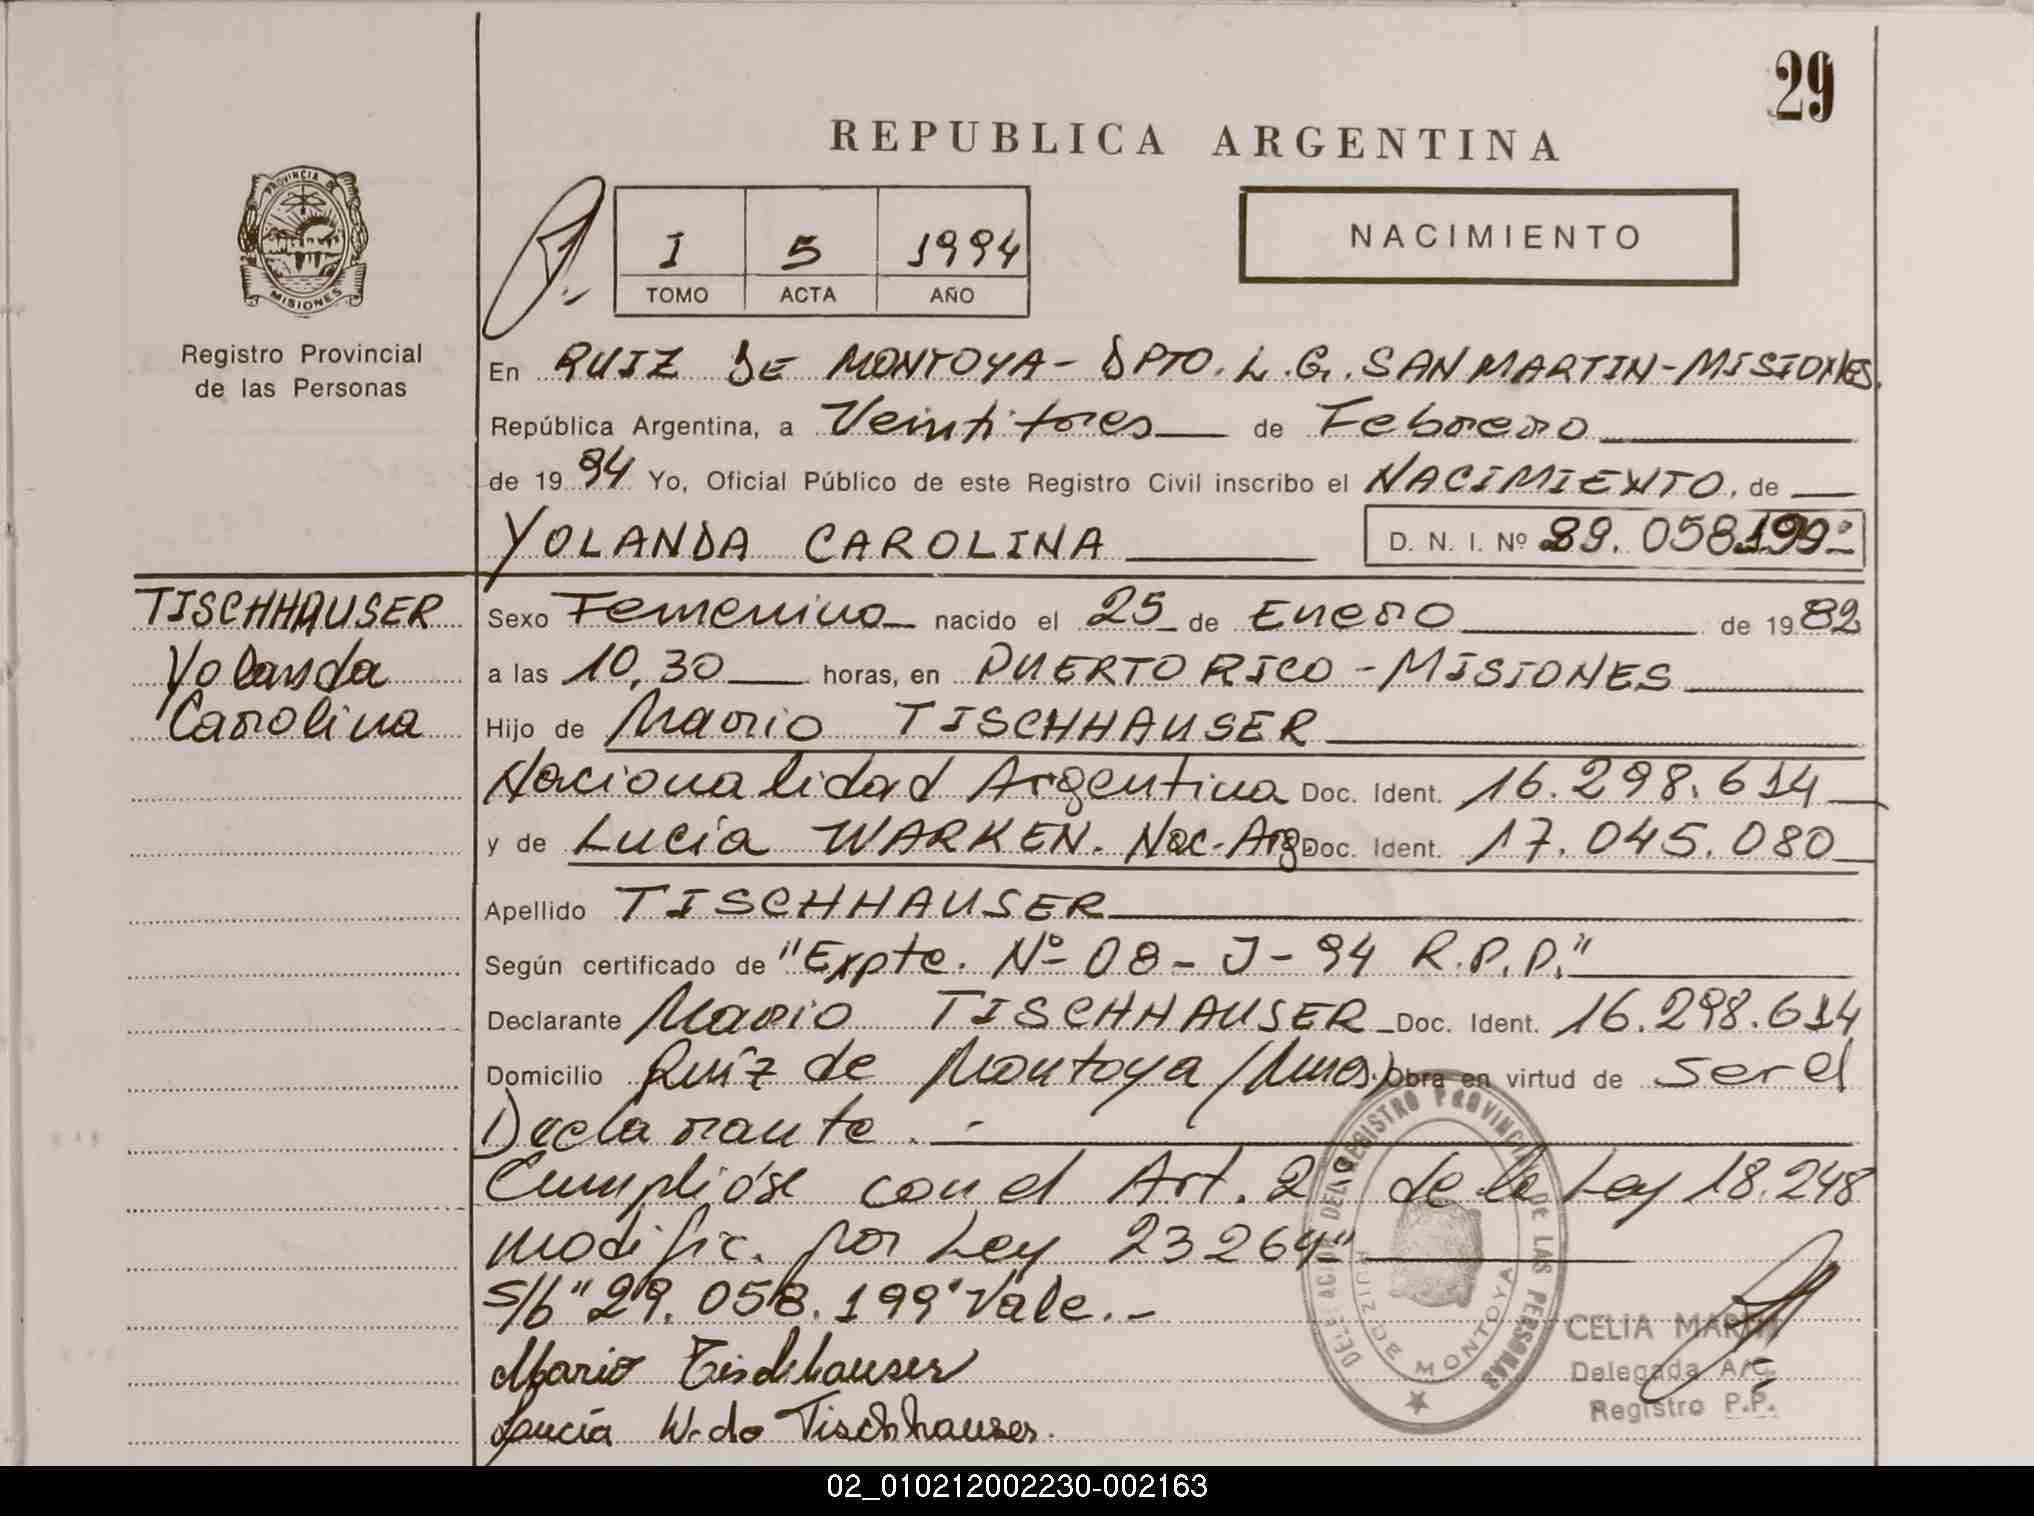 29
REPUBLICA ARGENTINA
PROVINCIA DE
MISIONES
Registro Provincial
de las Personas
I 5 1994
TOMO ACTA AÑO
NACIMIENTO
En RUIZ DE MONTOYA - DPTO. L. G. SAN MARTIN - MISIONES.
República Argentina, a Veintitres de Febrero
de 19 94 Yo, Oficial Público de este Registro Civil inscribo el NACIMIENTO, de
YOLANDA CAROLINA D. N. I. Nº 29.058.199
TISCHHAUSER
Yolanda
Carolina
Sexo Femenino nacido el 25 de Enero de 19 82
a las 10,30 horas, en PUERTO RICO - MISIONES
Hijo de Mario TISCHHAUSER
Nacionalidad Argentina Doc. Ident. 16.298.614
y de Lucía WARKEN. Nac. Arg Doc. Ident. 17.045.080
Apellido TISCHHAUSER
Según certificado de "Expte. Nº 08 - J - 94 R.P.P."
Declarante Mario TISCHHAUSER Doc. Ident. 16.298.614
Domicilio Ruiz de Montoya (Mnes.) Obra en virtud de ser el
Declarante. -
Cumplióse con el Art. 2º de la Ley 18.248
modific. por Ley 23264"
S/b "29.058.199" Vale. -
Mario Tischhauser
Lucía W. de Tischhauser.
DELEGACION DEL REGISTRO PROVINCIAL DE LAS PERSONAS
RUIZ DE MONTOYA
CELIA
Delegada A/C.
Registro P.P.
02_010212002230-002163